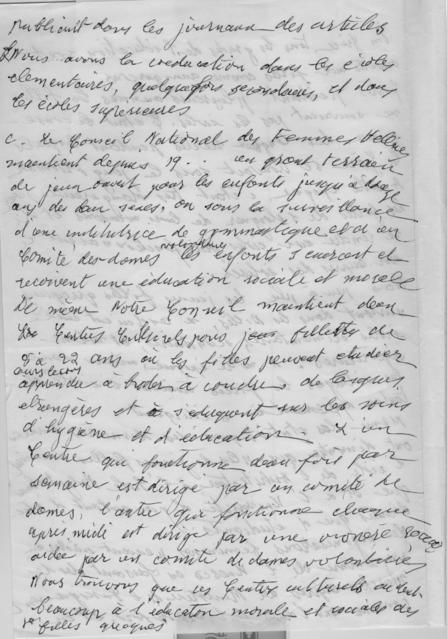 publient dans les journaux des articles
Nous avons la coéducation dans les écoles
élémentaires, quelquefois secondaires, et dans
les écoles supérieures
c. Le Conseil National des Femmes Hellènes
maintient depuis 19.. un grand terrain
de jeux ouvert pour les enfants jusqu'à douze
ans des deux sexes, où sous la surveillance
d'une institutrice de gymnastique et d'un
Comité des dames volontaires les enfants s'exercent et
reçoivent une éducation sociale et morale
De même Notre Conseil maintient deux
Centres Culturels pour jeunes fillettes de
à 22 ans où les filles peuvent étudier
apprendre à broder, à coudre, de langues
étrangères et à s'éduquent sur les soins
d'hygiène et d'éducation. L'un
Centre qui fonctionne deux fois par
semaine est dirigé par un comité de
dames, l'autre qui fonctionne chaque
après midi est dirigé par une
aidée par un comité de dames volontaires
Nous trouvons que ces Centres culturels aident
beaucoup à l'éducation morale et sociales des
filles grecques